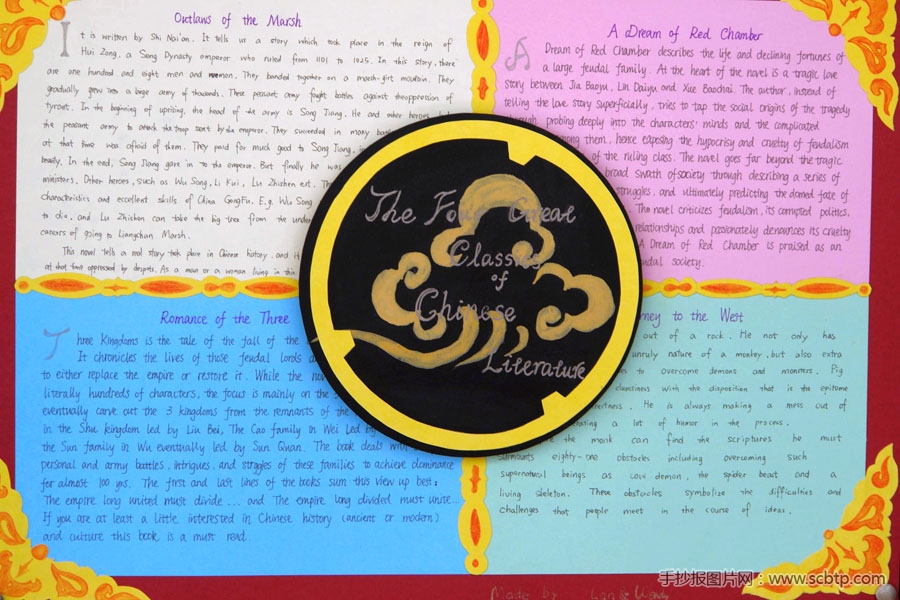 Outlaws of the Marsh
It is written by Shi Nai'an. It tells us a story which took place in the reign of
Hui Zong, a Song Dynasty emperor who ruled from 1101 to 1025. In this story, there
are one hundred and eight men and women. They banded together on a marsh-girt mountain. They
gradually grew into a large army of thousands. These peasant army fought battles against the oppression of
tyrant. In the beginning of uprising, the head of the army is Song Jiang. He and other heroes
the peasant army to attack the troop sent by the emperor. They succeeded in many
at that time was afraid of them. They paid for much good to Song Jiang,
In the end, Song Jiang gave in to the emperor. But finally he was
ministers. Other heroes, such as Wu Song, Li Kui, Lu Zhishen ect. Th
characteristics and excellent skills of China GongFu. E.g. Wu Song
to die, and Lu Zhishen can take the big tree from the under
careers of going to Liangshan Marsh.
This novel tells a real story took place in Chinese history, and it
at that time oppressed by despots. As a man or a woman living in this
A Dream of Red Chamber
A Dream of Red Chamber describes the life and declining fortunes of
a large feudal family. At the heart of the novel is a tragic love
story between Jia Baoyu, Lin Daiyu and Xue Baochai. The author, instead of
telling the love story superficially, tries to tap the social origins of the tragedy
through probing deeply into the characters' minds and the complicated
among them, hence exposing the hypocrisy and cruelty of feudalism
of the ruling class. The novel goes far beyond the tragic
broad swath of society through describing a series of
struggles, and ultimately predicting the doomed fate of
The novel criticizes feudalism, its corrupted politics,
relationships and passionately denounces its cruelty
A Dream of Red Chamber is praised as an
feudal society.
The Four Great
Classics
of
Chinese
Literature
Romance of the Three
Three Kingdoms is the tale of the fall of the
It chronicles the lives of those feudal lords a
to either replace the empire or restore it. While the nov
literally hundreds of characters, the focus is mainly on the
eventually carve out the 3 kingdoms from the remnants of the
In the Shu kingdom led by Liu Bei, The Cao family in Wei led by
the Sun family in Wu eventually led by Sun Quan. The book deals with
personal and army battles, intrigues, and struggles of these families to achieve dominance
for almost 100 yrs. The first and last lines of the books sum this view up best:
The empire long united must divide ... and The empire long divided must unite...
If you are at least a little interested in Chinese history (ancient or modern)
and culture this book is a must read.
ney to the West
out of a rock. He not only has
unruly nature of a monkey, but also extra
to overcome demons and monsters. Pig
clumsiness with the disposition that is the epitome
He is always making a mess out of
a lot of humor in the process.
the monk can find the scriptures he must
surmounts eighty-one obstacles including overcoming such
supernatural beings as cow demon, the spider beast and a
living skeleton. These obstacles symbolize the difficulties and
challenges that people meet in the course of ideas.
Made by
手抄报图片网：www.scbtp.com